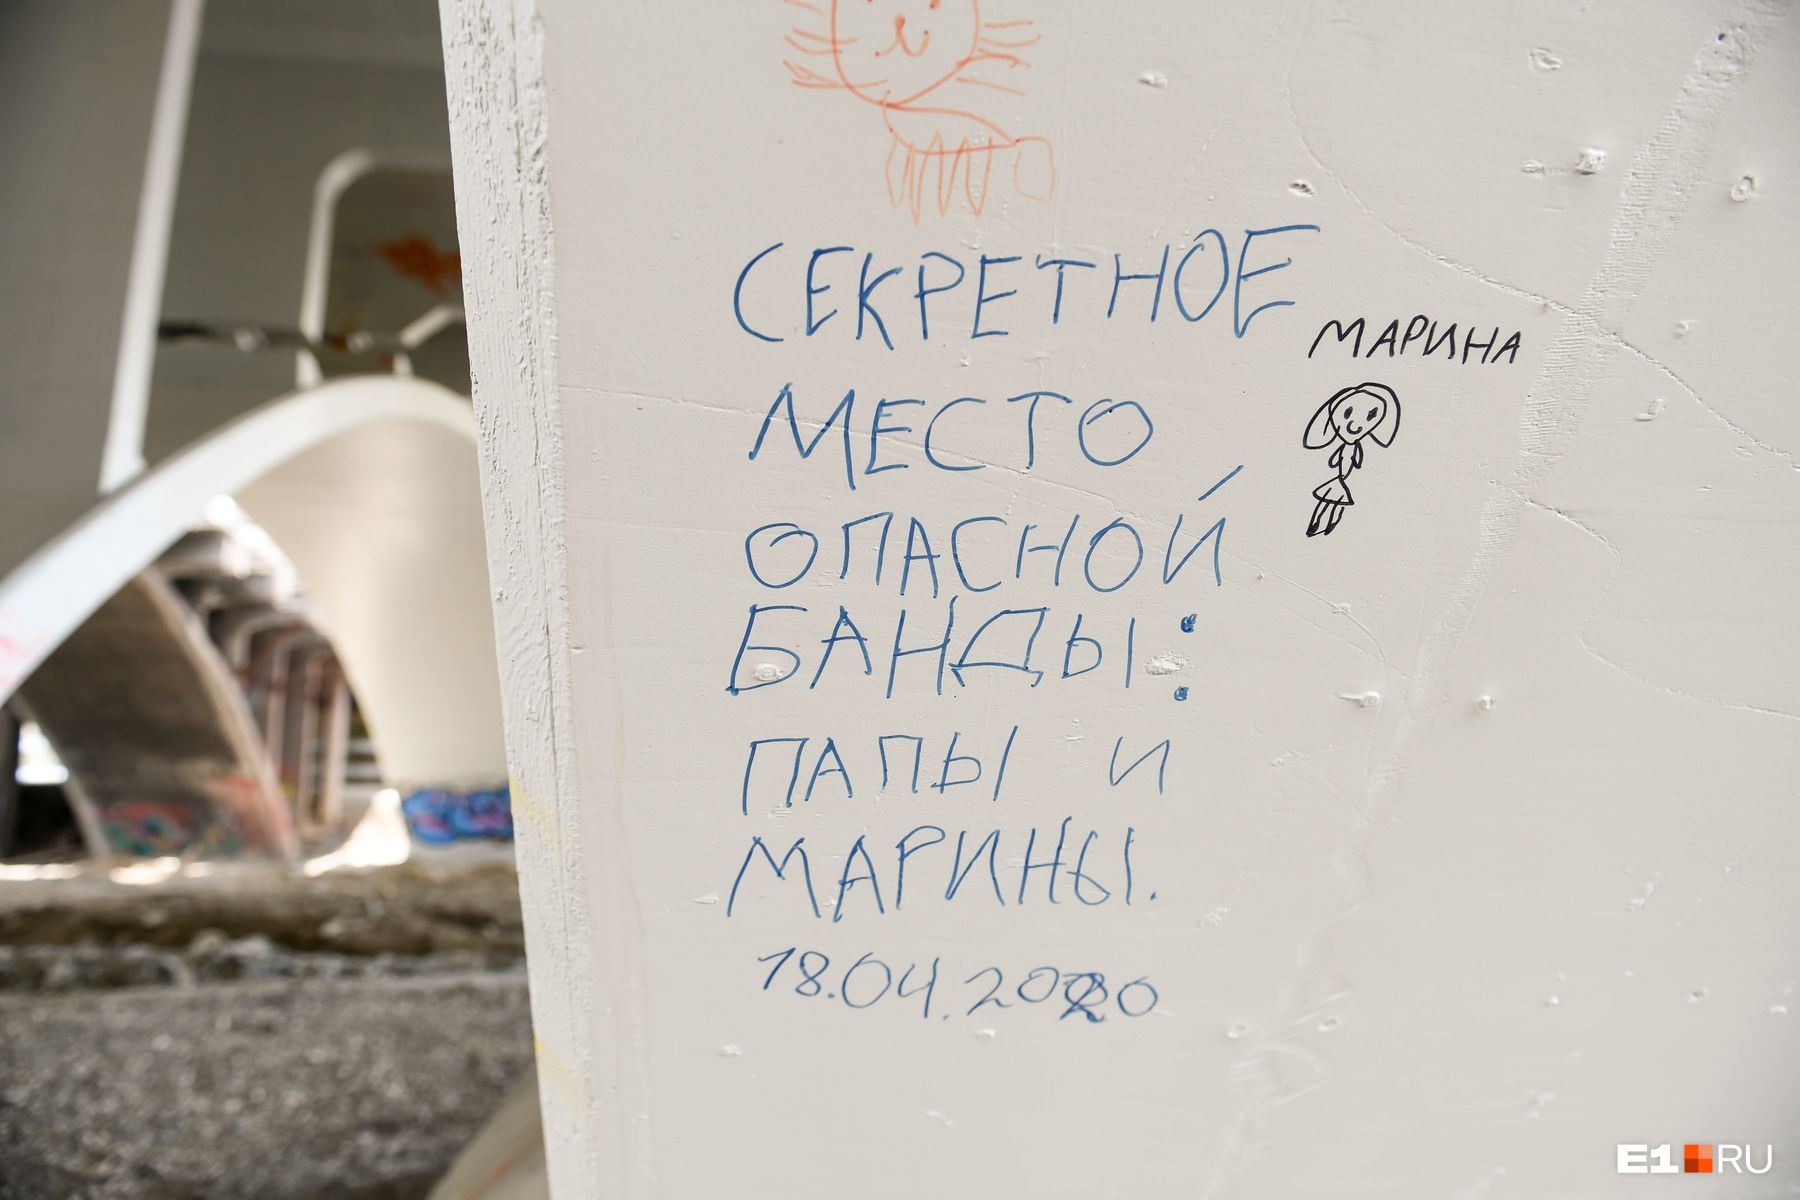 СЕКРЕТНОЕ
МАРИНА
МЕСТО
ОПАСНОЙ
БАНДЫ:
ПАПЫ И
МАРИНЫ.
18.04.2020
E1.RU